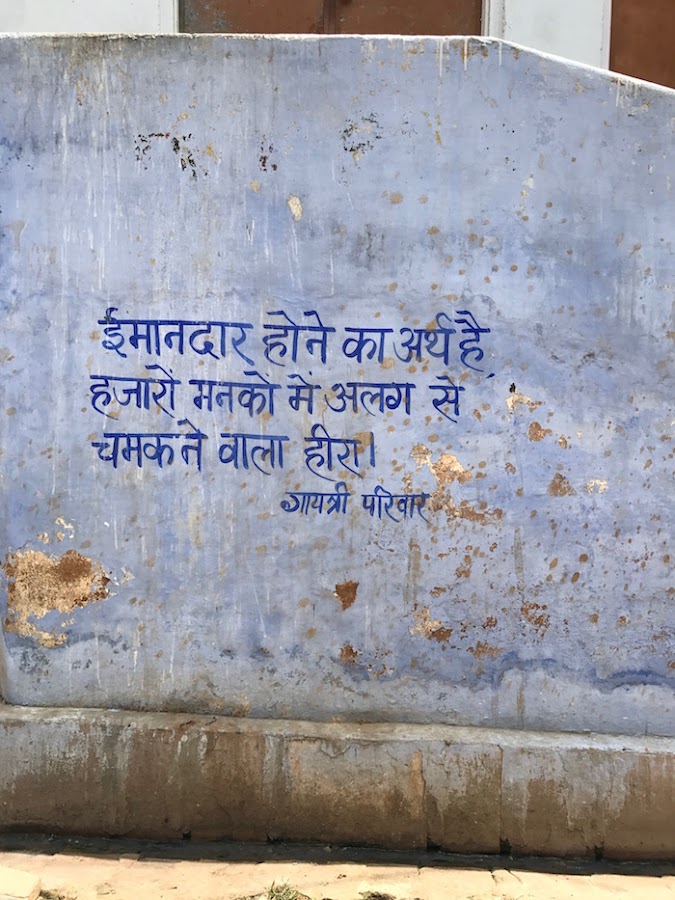 ईमानदार होने का अर्थ है,
हजारों मनकों में अलग से
चमकने वाला हीरा।
गायत्री परिवार